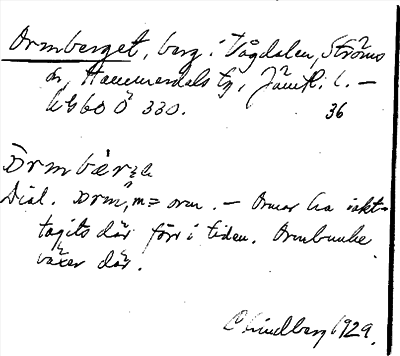 Ormberget, berg i Vågdalen, Ströms
sn, Hammerdals tg, Jämtl. l. —
kG60 Ö 330. 36
Ormbär
Dial. orm, m = orm. — Ormar ha iakt-
tagits där förr i tiden. Ormbunke
växer där.
C Lindberg 1929.